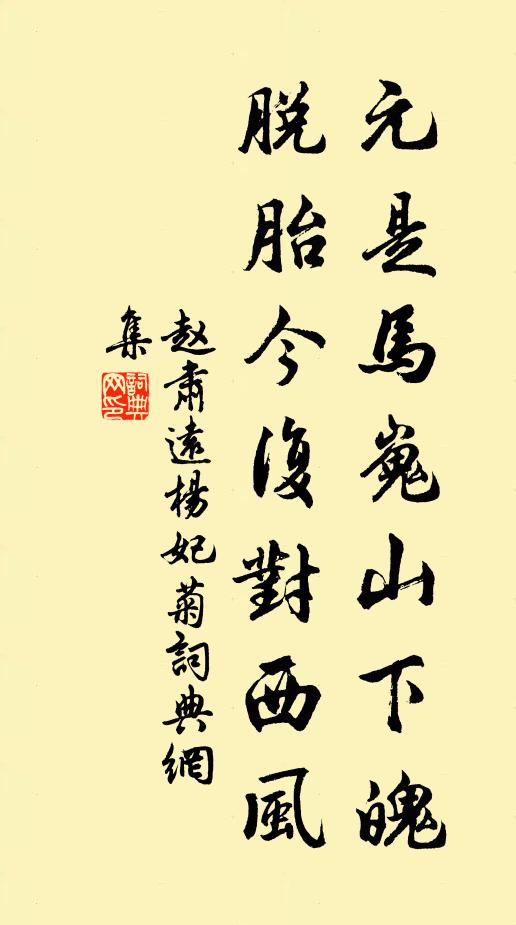 元是馬嵬山下魄
脱胎今復對西風
赵肃遠楊妃菊詞典網
集
詞典
网印